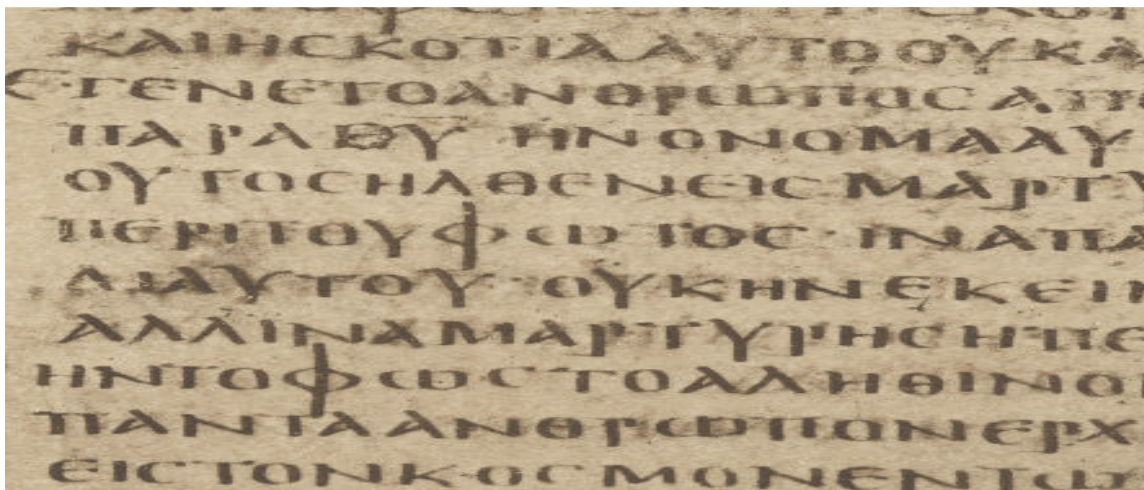 ΚΑΙΗϹΚΟΤΙΑΑΥΤΟΟΥΚΑ
ΕΓΕΝΕΤΟΑΝΘΡΩΠΟϹΑΠ
ΠΑΡΑΘ̅Υ̅ ΗΝΟΝΟΜΑΑΥ
ΟΥΤΟϹΗΛΘΕΝΕΙϹΜΑΡΤΥ
ΠΕΡΙΤΟΥΦΩΤΟϹ·ΙΝΑΠΑ
ΔΙΑΥΤΟΥ·ΟΥΚΗΝΕΚΕΙ
ΑΛΛΙΝΑΜΑΡΤΥΡΗϹΗΠΕ
ΗΝΤΟΦΩϹΤΟΑΛΗΘΙΝΟ
ΠΑΝΤΑΑΝΘΡΩΠΟΝΕΡΧ
ΕΙϹΤΟΝΚΟϹΜΟΝΕΝΤΩ